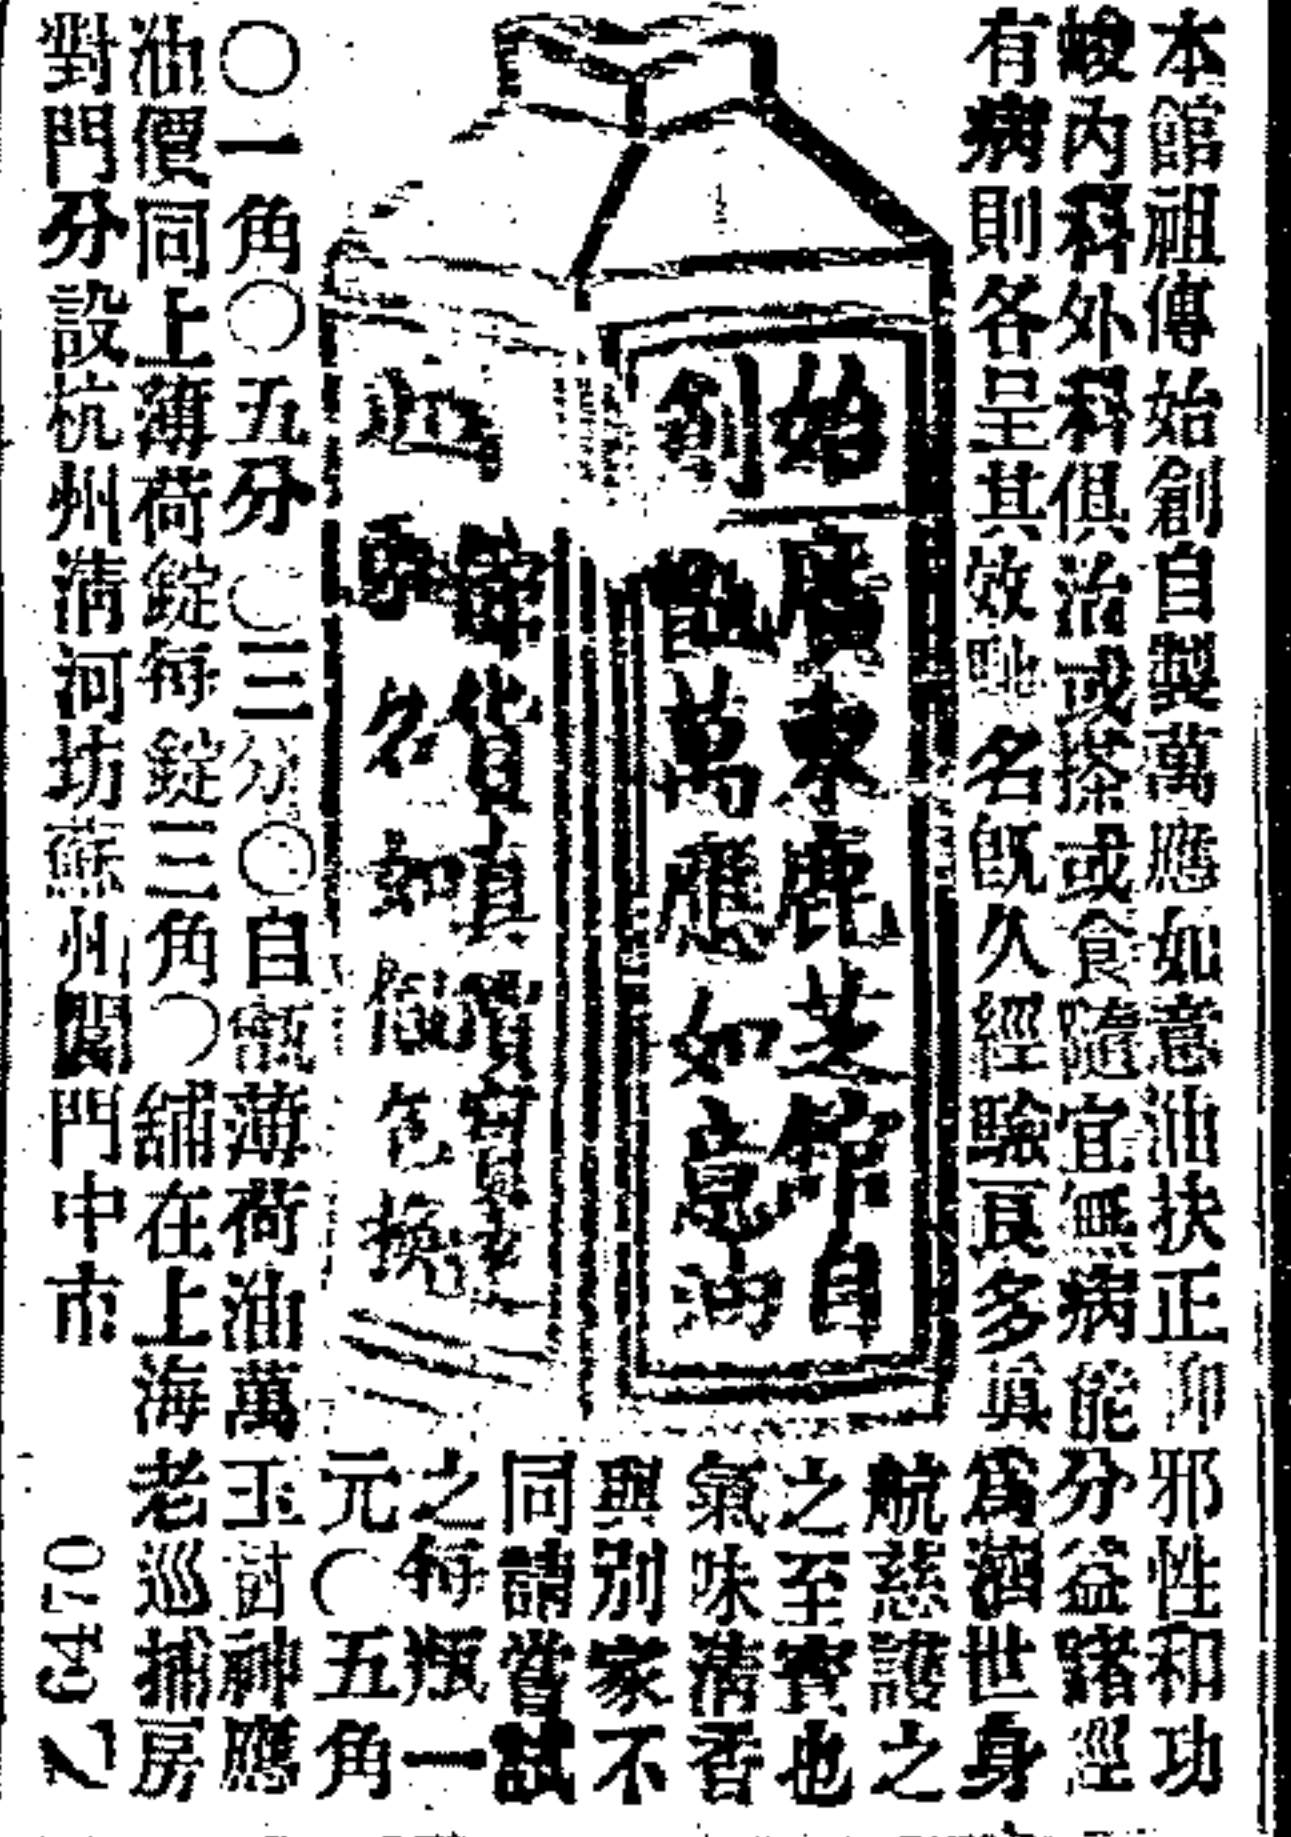 本館祖傳始創自製萬應如意油扶正抑邪性和功
峻內科外科俱治或搽或食隨宜無病能分益諸經
有病則各呈其效馳名既久經驗頁多眞爲濟世身
航慈護之
之至寶也
氣味清香
與別家不
同請嘗試
之每瓶一
元〇五角
〇一角〇五分〇三分〇自製薄荷油萬玉樹神應
油價同上薄荷錠每錠三角〇舖在上海老巡捕房
對門分設杭州清河坊蘇州閶門中市
始
創
廣東鹿芝館自
製萬應如意油
貨真
馳名如假包換